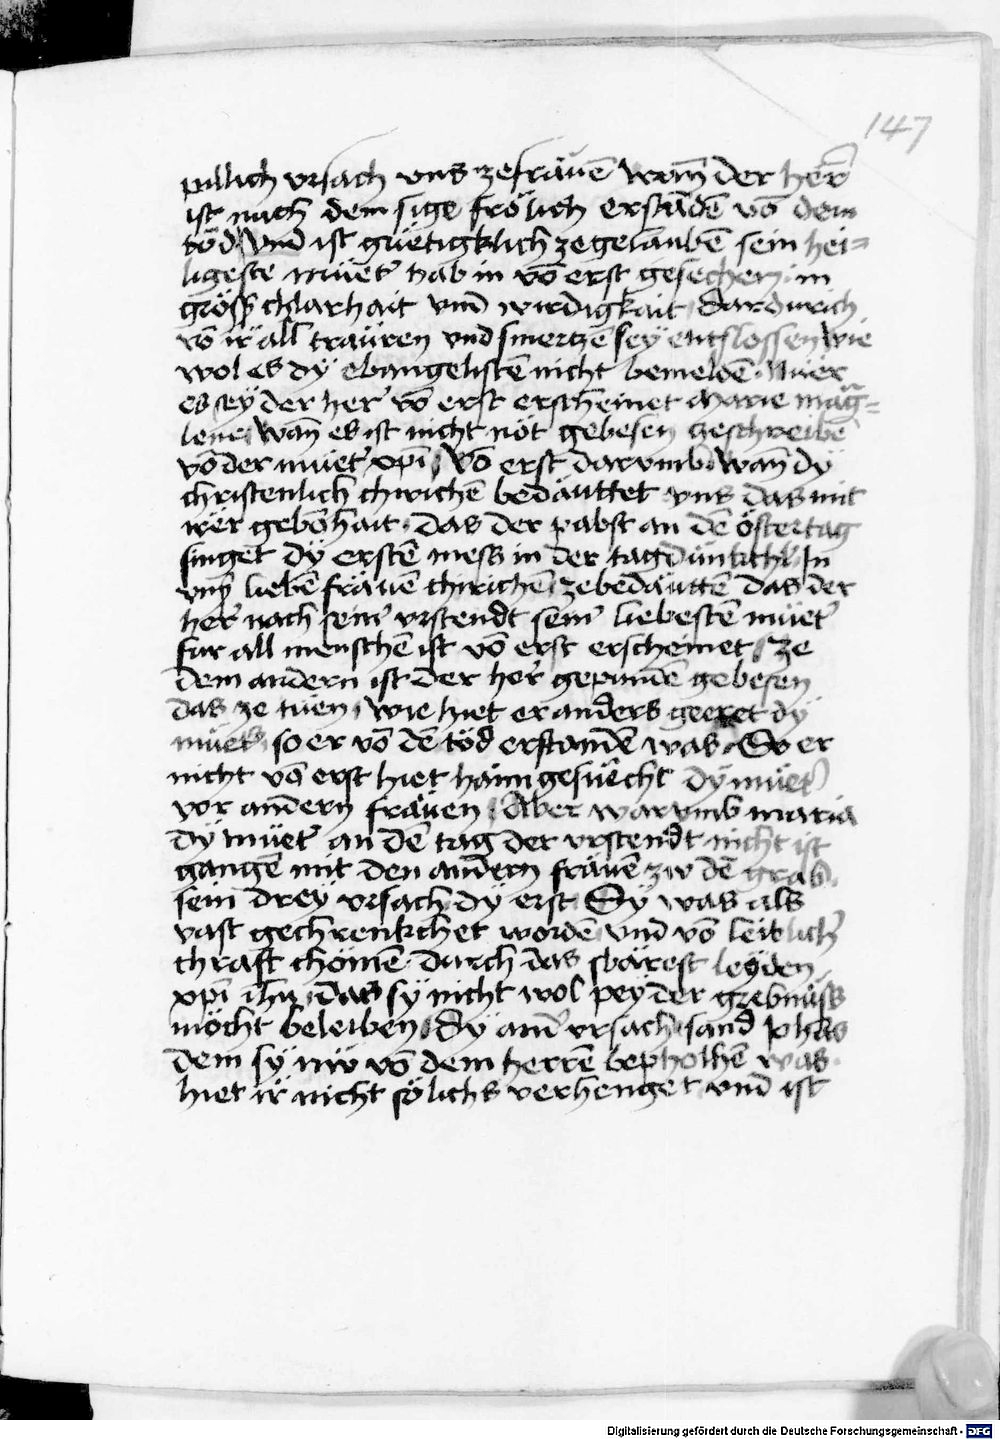 147
pillich vrsach vns zefräuē wan̄ der her̄
ist nach dem sige frölich erstandē vō dem
töd Vnd ist güetigklich zegelaubē sein hei=
ligeste müet' hab in vō erst gesechen in
gröss' chlarhait vnd wirdigkait, dardurich
vō ir all traüren vnd smertzē sey entslossen wie
wol es dÿ ebangelistē nicht bemeldē. Nüer
es sey der her' vō erst erscheinet Marie mag=
lene, wan̄ es ist nicht nöt gebesen geschreibē
vō der müet' xpī, Vō erst darumb wan̄ dÿ
christenlich chirichē bedäuttet vns das mit
irer gebōhait. das der pabst an dē östertag
singet dÿ erstē mess in der tagdünkchl In
vns' liebē fräuen chirichē zebedäuttē das der
her' nach sein' vrstendt sein' liebestē müet'
fur all menschē ist vō erst erscheinet, ze
dem andern ist der her' gepundē gebesen
das ze tüen, wie hiet er anders geeret dÿ
müet', so er vō dē töd erstandē was. So er
nicht vō erst hiet haim gesüecht dÿ müet'
vor andern fräuen, Aber warumb maria
dÿ müet' an dē tag der vrstendt nicht ist
gangē mit den andern fräuē zw dē grab.
sein dreÿ vrsach dÿ erst Sÿ was als
vast gechrenkchet wordē vnd vō leiblich'
chraft chömē durch das swärest leÿden
xpī ihū, das sÿ nicht wol peÿ der grebnüss
möcht beleiben, dÿ and' vrsach, sand Johās
dem sÿ nw vō dem herrē bepholhē was.
hiet ir nicht sölichs verhenget vnd ist
Digitalisierung gefördert durch die Deutsche Forschungsgemeinschaft - DFG